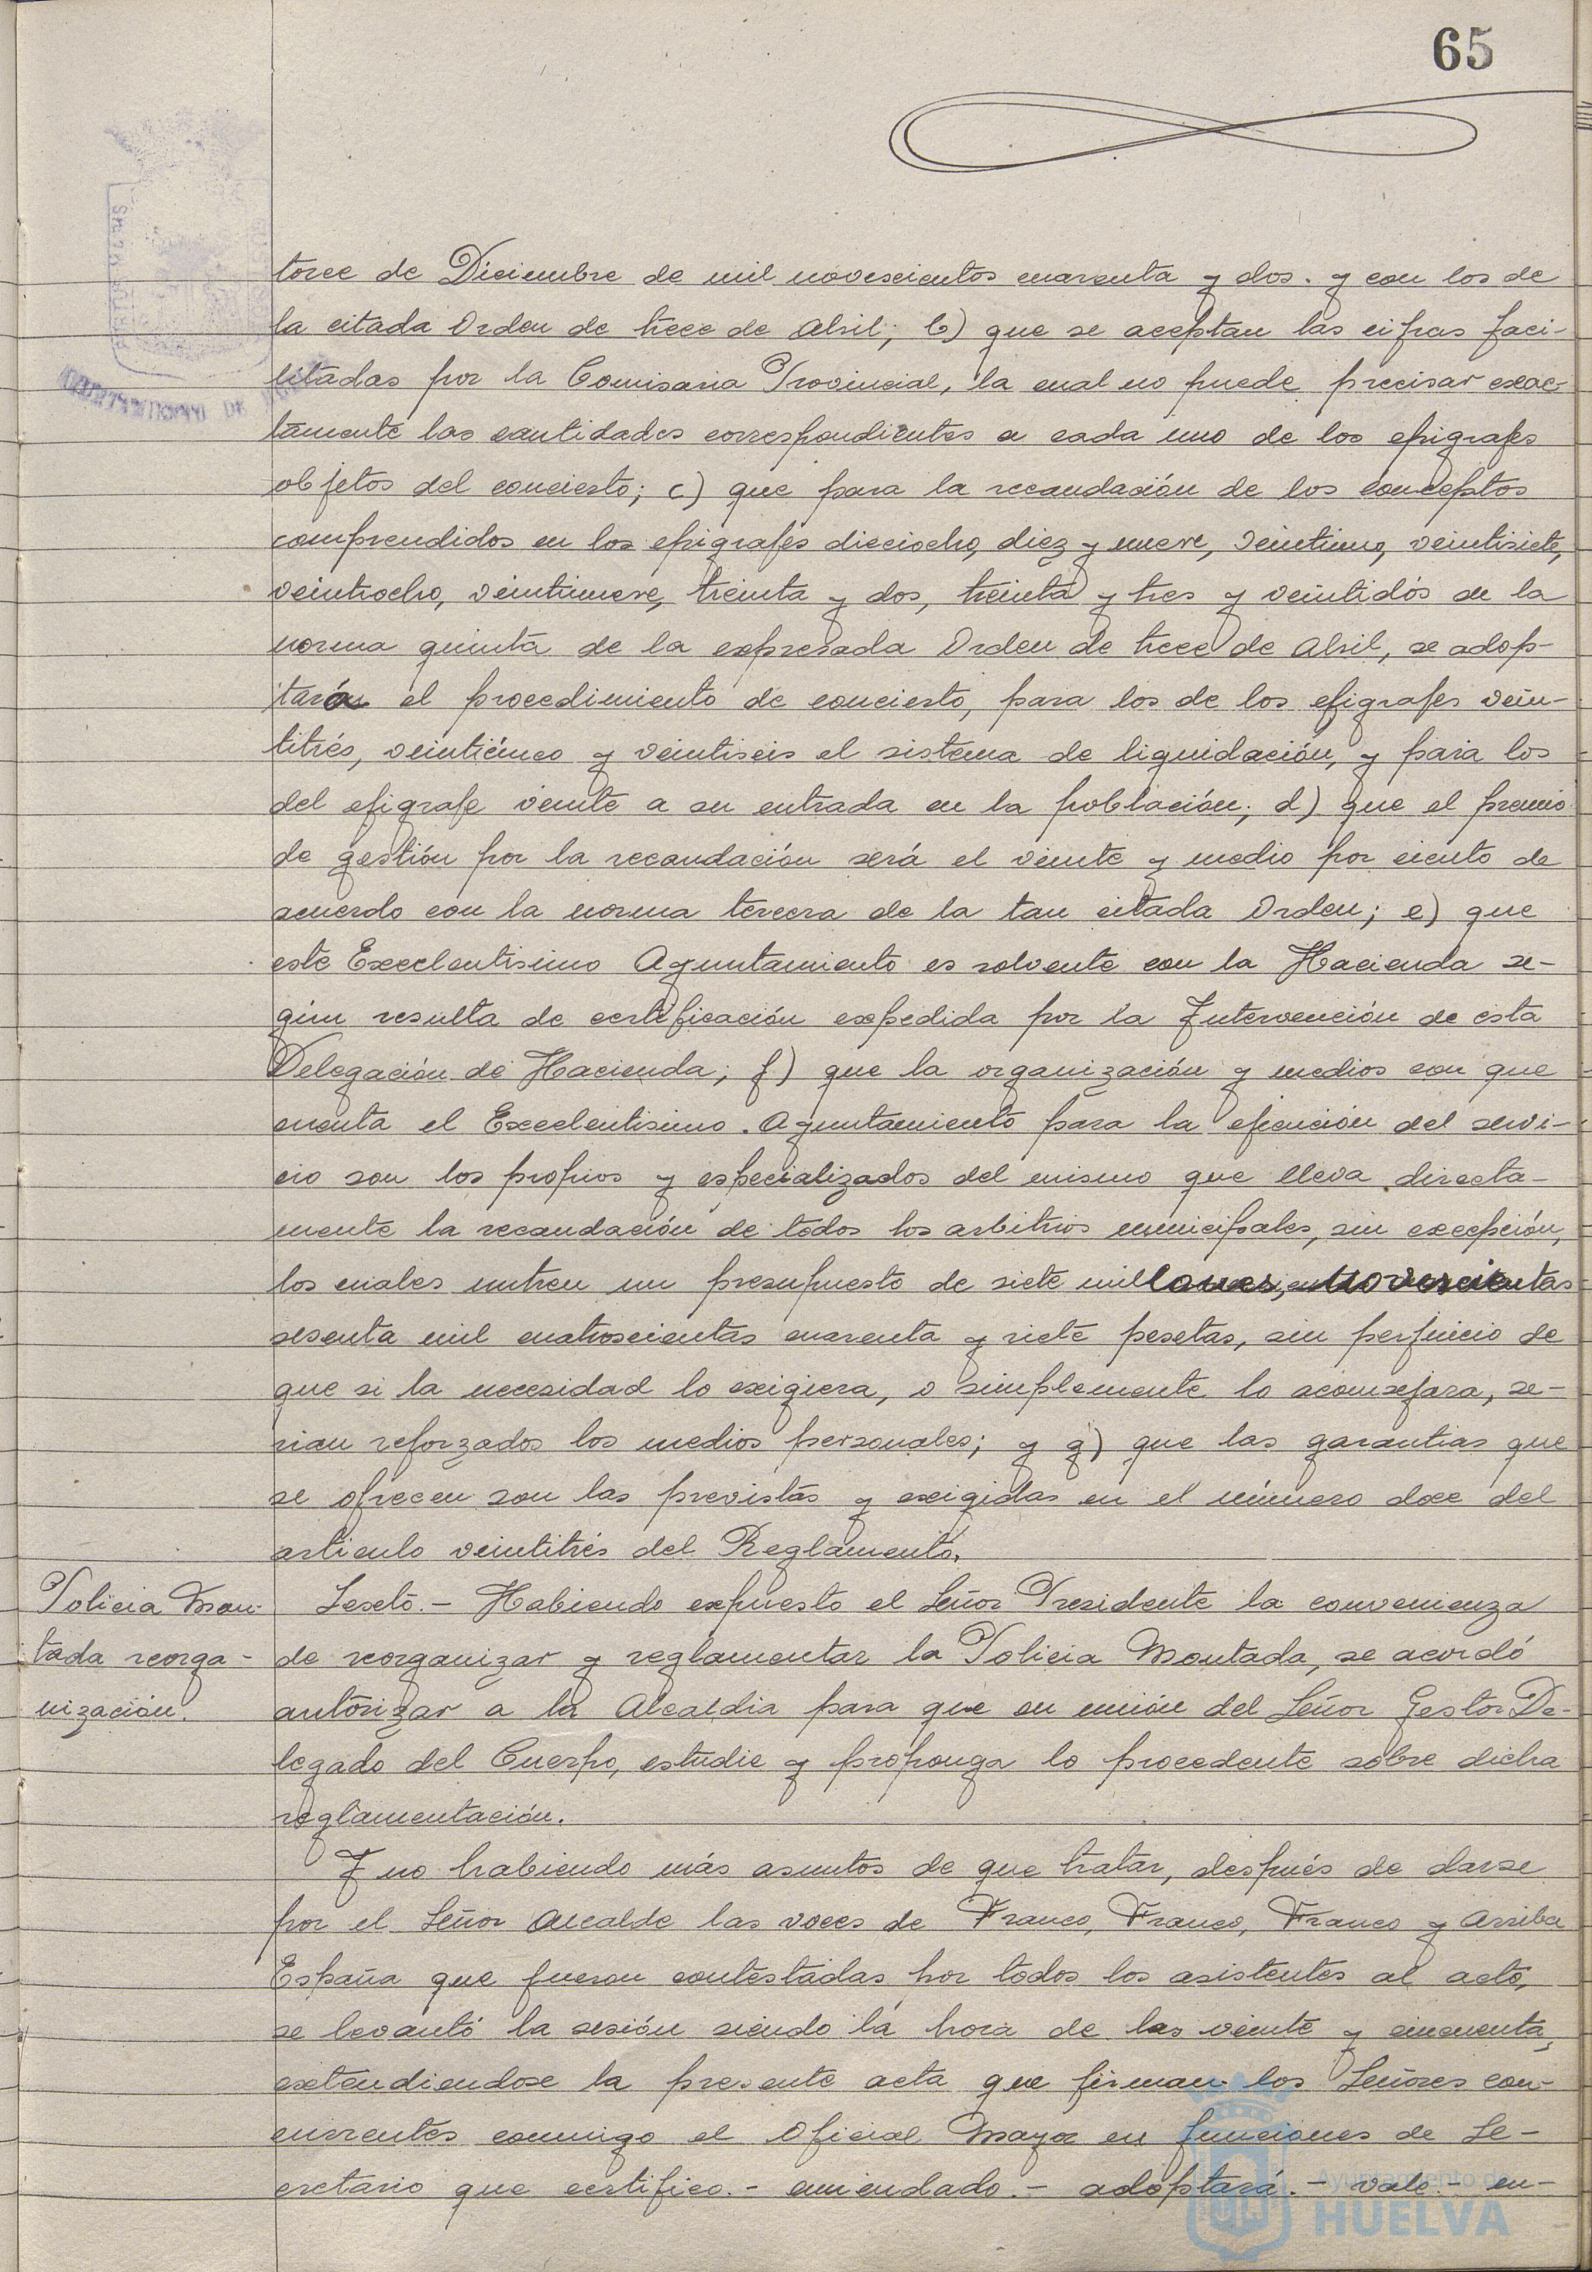 65
torce de Diciembre de mil novescientos cuarenta y dos. y con los de
la citada Orden de trece de Abril; b) que se aceptan las cifras faci-
litadas por la Comisaria Provincial, la cual no puede precisar exac-
tamente las cantidades correspondientes a cada uno de los epigrafes
objetos del concierto; c) que para la recaudación de los conceptos
comprendidos en los epigrafes dieciocho, diez y nueve, veintiuno, veintisiete,
veintiocho, veintinueve, treinta y dos, treinta y tres y veintidós de la
norma quinta de la expresada Orden de trece de Abril, se adop-
tará el procedimiento de concierto, para los de los epigrafes vein-
titrés, veinticinco y veintiseis el sistema de liquidación, y para los
del epigrafe veinte a su entrada en la población; d) que el premio
de gestión por la recaudación será el veinte y medio por ciento de
acuerdo con la norma tercera de la tan citada Orden; e) que
este Excelentisimo Ayuntamiento es solvente con la Hacienda se-
gún resulta de certificación expedida por la Intervención de esta
Delegación de Hacienda; f) que la organización y medios con que
cuenta el Excelentisimo. Ayuntamiento para la ejecución del servi-
cio son los propios y especializados del mismo que lleva directa-
mente la recaudación de todos los arbitrios municipales, sin excepción,
los cuales nutren un presupuesto de siete millones, novescientas
sesenta mil cuatroscientas cuarenta y siete pesetas, sin perjuicio de
que si la necesidad lo exigiera, o simplemente lo aconsejara, se-
rian reforzados los medios personales; y g) que las garantias que
se ofrecen son las previstas y exigidas en el número doce del
articulo veintitrés del Reglamento.
Policia Mon-
tada reorga-
nización.
Sexto.- Habiendo expuesto el Señor Presidente la convenienza
de reorganizar y reglamentar la Policia Montada, se acordó
autorizar a la Alcaldia para que en unión del Señor Gestor De-
legado del Cuerpo, estudie y proponga lo procedente sobre dicha
reglamentación.
Y no habiendo más asuntos de que tratar, después de darse
por el Señor Alcalde las voces de Franco, Franco, Franco y Arriba
España que fueron contestadas por todos los asistentes al acto,
se levantó la sesión siendo la hora de las veinte y cincuenta,
extendiendose la presente acta que firman los Señores con-
currentes conmigo el Oficial Mayor en funciones de Se-
cretario que certifico.- enmendado.- adoptará.- vale.- en-
Ayuntamiento de
HUELVA